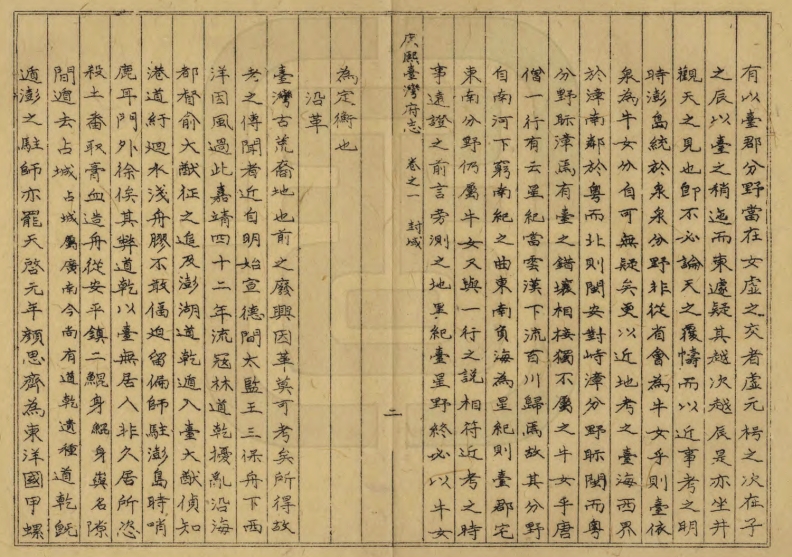 有以臺郡分野當在女虛之交者虛元枵之次在子
之辰以臺之稍迤而東遽疑其越次越辰是亦坐井
觀天之見也卽不必論天之覆幬而以近事考之明
時澎島統於泉泉分野非從省會為牛女乎則臺依
泉為牛女分自可無疑矣更以近地考之臺海西界
於漳南鄰於粵而北則閩安對峙漳分野眎閩而粵
分野眎漳焉有臺之錯壤相接獨不屬之牛女乎唐
僧一行有云星紀當雲漢下流百川歸焉故其分野
自南河下窮南紀之曲東南負海為星紀則臺郡宅
東南分野仍屬牛女又與一行之說相符近考之時
事遠證之前言旁測之地里紀臺星野終必以牛女
庚熙臺灣府志 卷之一 封域
二
為定衡也
沿革
臺灣古荒裔地也前之廢興因革莫可考矣所得故
老之傳聞者近自明始宣德間太監王三保舟下西
洋因風過此嘉靖四十二年流寇林道乾擾亂沿海
都督俞大猷征之追及澎湖道乾遁入臺大猷偵知
港道紆迴水淺舟膠不敢偪迫留偏師駐澎島時哨
鹿耳門外徐俟其弊道乾以臺無居人非久居所恣
殺土番取膏血造舟從安平鎮二鯤身鯤身嶼名隙
間遁去占城占城屬廣南今尚有道乾遺種道乾旣
遁澎之駐師亦罷天啓元年顏思齊為東洋國甲螺